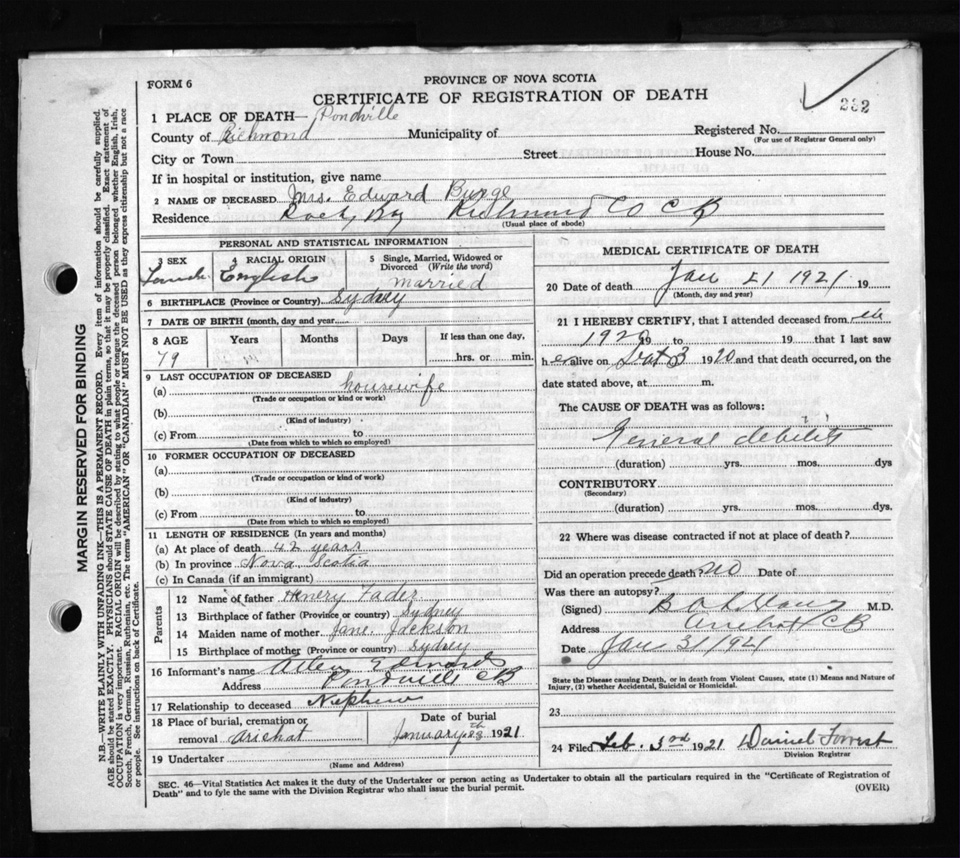 FORM 6
PROVINCE OF NOVA SCOTIA
CERTIFICATE OF REGISTRATION OF DEATH
232
1 PLACE OF DEATH— Pondville
County of Richmond Municipality of Registered No.
(For use of Registrar General only)
City or Town Street House No.
If in hospital or institution, give name
2 NAME OF DECEASED Mrs. Edward Burge
Residence Rocky Bay Richmond Co C B
(Usual place of abode)
PERSONAL AND STATISTICAL INFORMATION
3 SEX 4 RACIAL ORIGIN 5 Single, Married, Widowed or Divorced (Write the word)
Female English married
6 BIRTHPLACE (Province or Country) Sydney
7 DATE OF BIRTH (month, day and year)
8 AGE Years Months Days If less than one day,
79 hrs. or min.
9 LAST OCCUPATION OF DECEASED
(a) housewife
(Trade or occupation or kind or work)
(b)
(Kind of industry)
(c) From to
(Date from which to which so employed)
10 FORMER OCCUPATION OF DECEASED
(a)
(Trade or occupation or kind of work)
(b)
(Kind of industry)
(c) From to
(Date from which to which so employed)
11 LENGTH OF RESIDENCE (In years and months)
(a) At place of death 42 years
(b) In province Nova Scotia
(c) In Canada (if an immigrant)
Parents
12 Name of father Henery Fader
13 Birthplace of father (Province or country) Sydney
14 Maiden name of mother Jane Jackson
15 Birthplace of mother (Province or country) Sydney
16 Informant's name Allen Edwards
Address Pondville CB
17 Relationship to deceased Nephew
18 Place of burial, cremation or removal Arichat
Date of burial
January 23th 1921
19 Undertaker
(Name and Address)
MEDICAL CERTIFICATE OF DEATH
20 Date of death Jan 21 1921 19
(Month, day and year)
21 I HEREBY CERTIFY, that I attended deceased from
1920 19 to 19 that I last saw
her alive on 3 1920 and that death occurred, on
date stated above, at m.
The CAUSE OF DEATH was as follows:
General debility
(duration) yrs. mos. dys
CONTRIBUTORY
(Secondary)
(duration) yrs. mos. dys.
22 Where was disease contracted if not at place of death?
Did an operation precede death no Date of
Was there an autopsy?
(Signed) M.D.
Address Arichat CB
Date Jan 31/921
State the Disease causing Death, or in death from Violent Causes, state (1) Means and Nature of
Injury, (2) whether Accidental, Suicidal or Homicidal.
23
24 Filed Feb. 3rd 1921 Daniel Forrest
Division Registrar
SEC. 46—Vital Statistics Act makes it the duty of the Undertaker or person acting as Undertaker to obtain all the particulars required in the "Certificate of Registration of
Death" and to fyle the same with the Division Registrar who shall issue the burial permit.
(OVER)
MARGIN RESERVED FOR BINDING
N.B.—WRITE PLAINLY WITH UNFADING INK—THIS IS A PERMANENT RECORD. Every item of information should be carefully supplied.
AGE should be stated EXACTLY. PHYSICIANS should STATE CAUSE OF DEATH in plain terms, so that it may be properly classified. Exact statement of
OCCUPATION is very important. RACIAL ORIGIN will be described by stating to what people or tongue the deceased person belonged whether English, Irish,
Scotch, French, German, Russian, Ruthenian, etc. The terms "AMERICAN" OR "CANADIAN" MUST NOT BE USED as they express citizenship but not a race
or people. See instructions on back of Certificate.